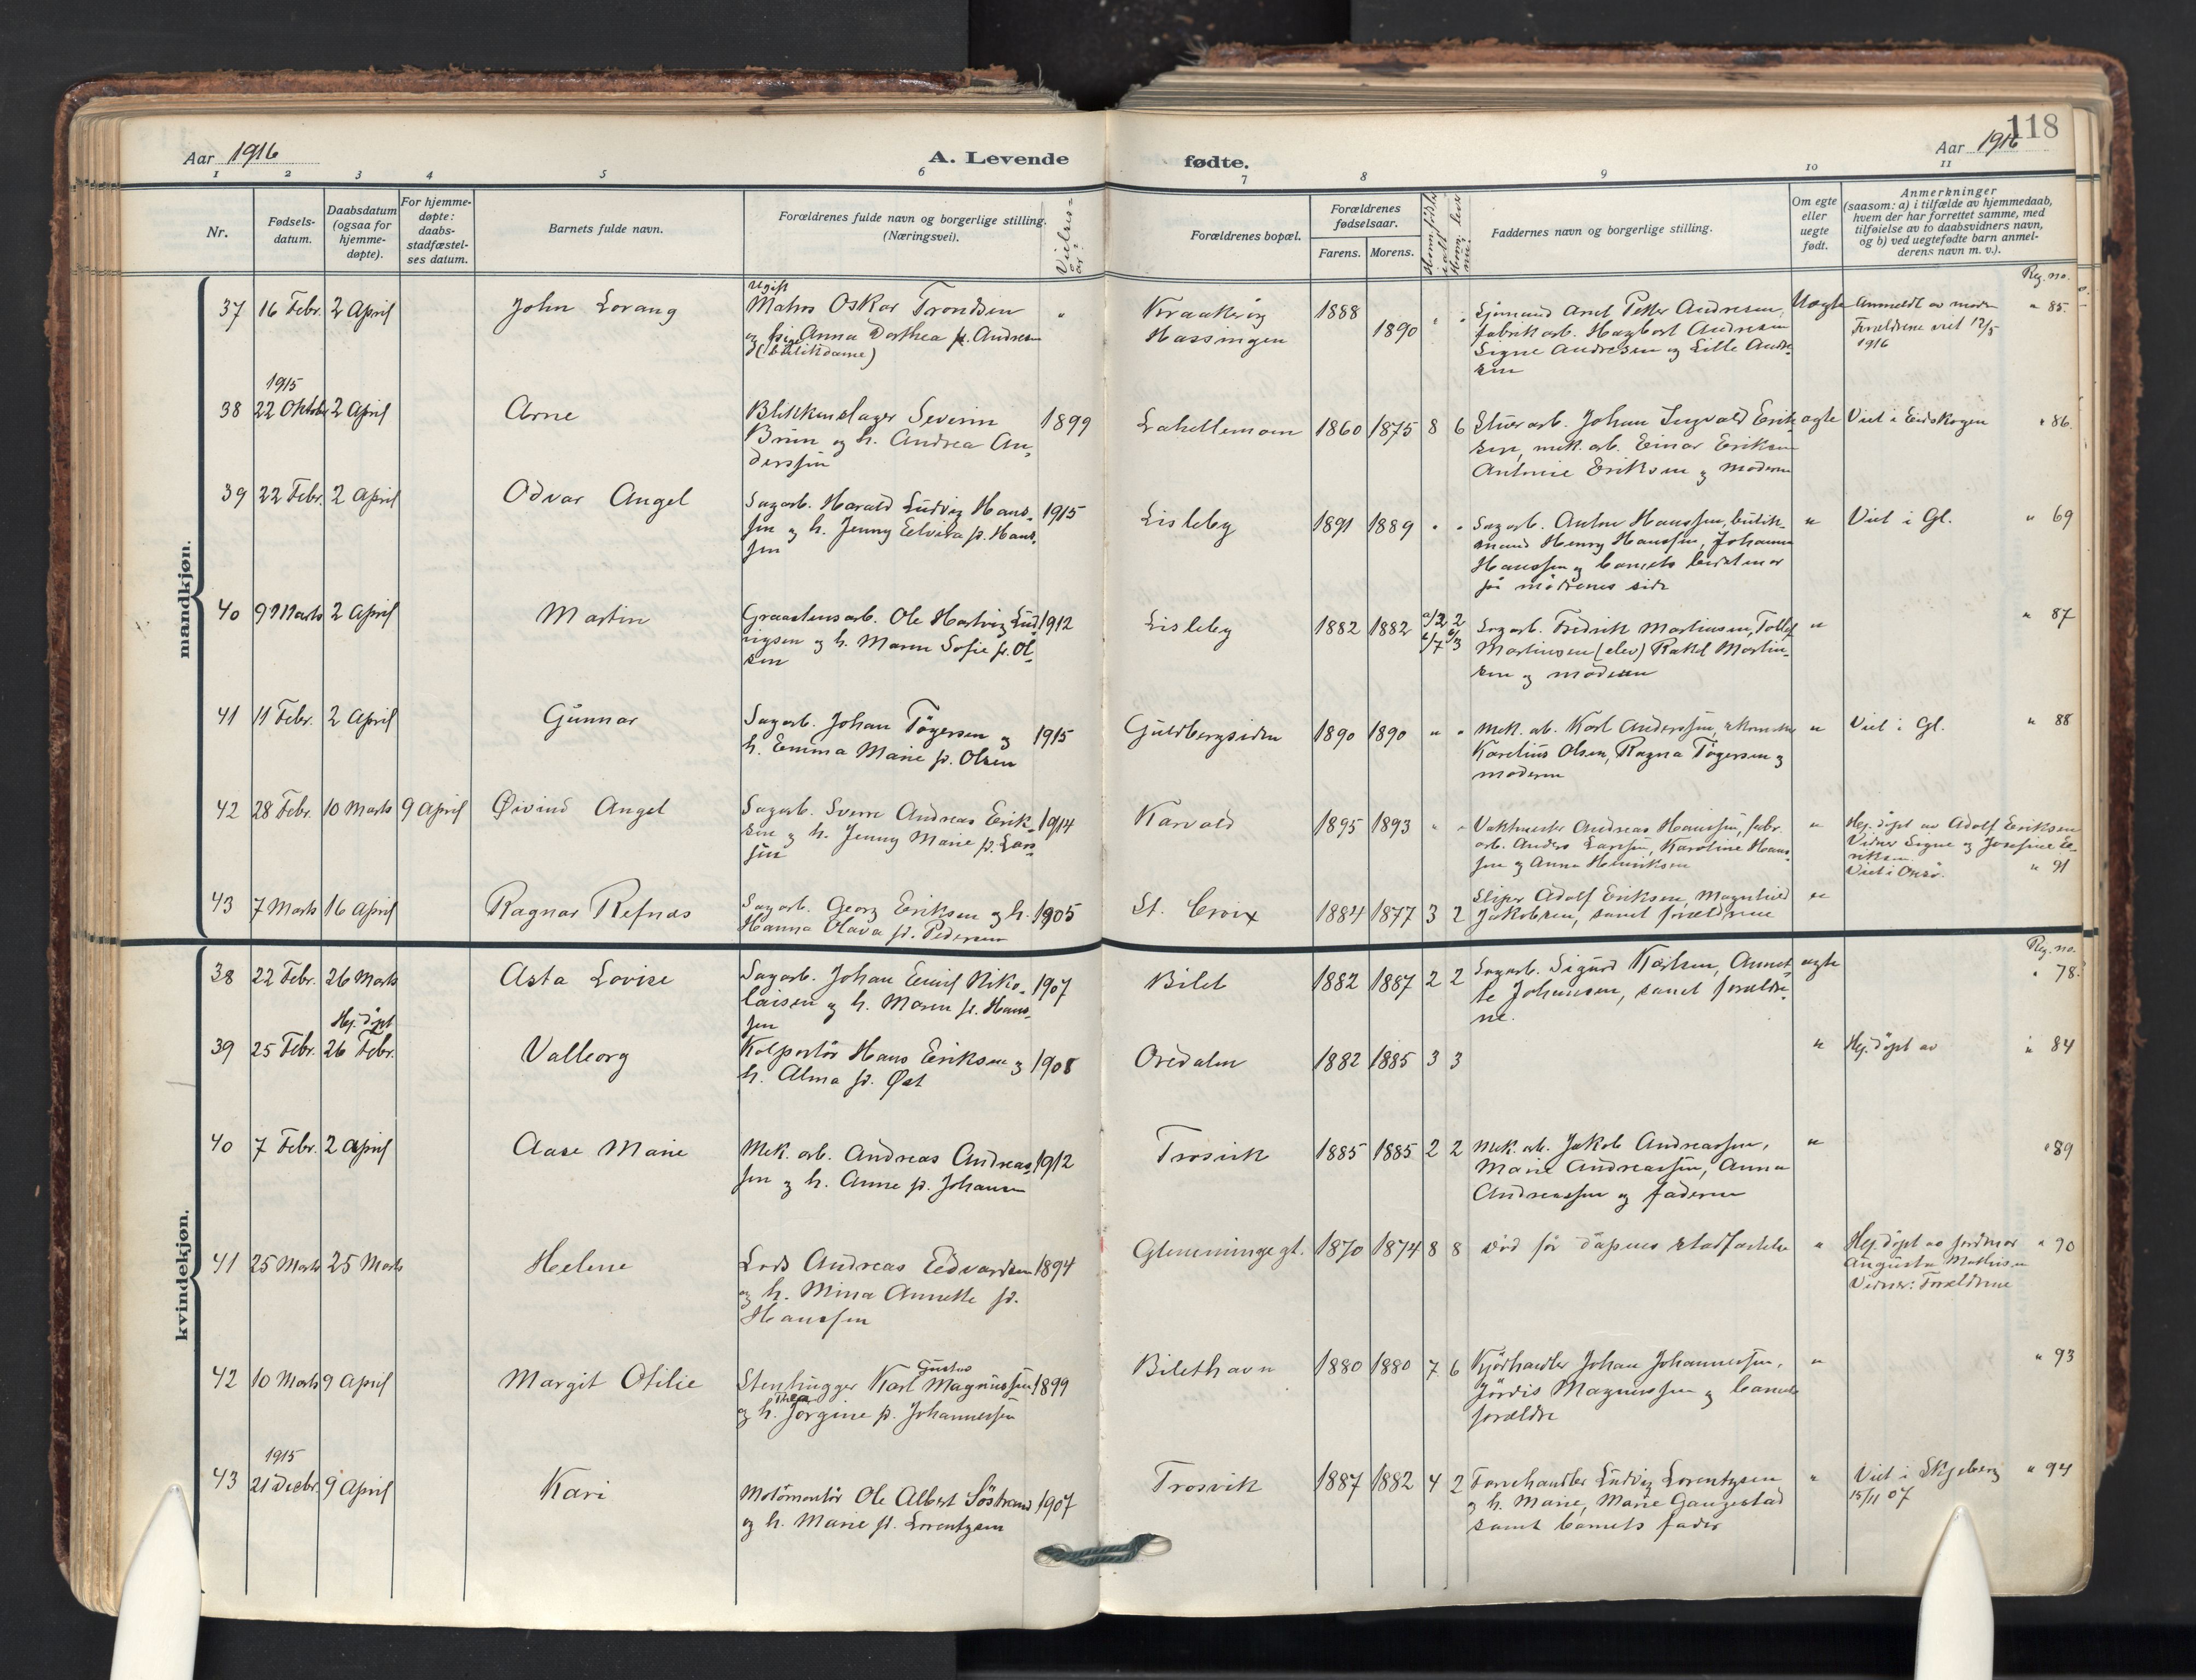 118
Aar 1916
A. Levende
fødte.
Aar 1916
1 2 3 4 5 6 7 8 9 10 11
Nr.
Fødsels-
datum.
Daabsdatum
(ogsaa for
hjemme-
døpte).
For hjemme-
døpte:
daabs-
stadfæstel-
ses datum.
Barnets fulde navn.
Forældrenes fulde navn og borgerlige stilling.
(Næringsvei).
Vielses-
aar?
Forældrenes bopæl.
Forældrenes
fødselsaar.
Farens. Morens.
Faddernes navn og borgerlige stilling.
Om egte
eller
uegte
født.
Anmerkninger
(saasom: a) i tilfælde av hjemmedaab,
hvem der har forrettet samme, med
tilføielse av to daabsvidners navn,
og b) ved uegtefødte barn anmel-
derens navn m. v.).
mandkjøn.
Reg. no.
37 16 Febr. 2 April John Lorang
Ugift
Matros Oskar Trondsen
og pige Anna Dorthea f. Andresen
(butikdame)
Kraakerøy
Hassingen
1888 1890
Sjømand Arnt Petter Andresen,
fabrikarb. Hagbart Andresen
Signe Andresen og Lille Andre-
sen
Uægte
Anmeldt av moder
Forældrene viet 12/5
1916
" 85.
38 1915
22 Oktober 2 April Arne
Blikkenslager Severin
Brun og h. Andrea An-
derssen
1899
Lahellemoen 1860 1875 8 6
Stuerarb. Johan Ingvald Erik-
sen, mek. arb. Einar Eriksen
Antonie Eriksen og moderen
ægte
Viet i Eidskogen
" 86.
39 22 Febr. 2 April Odvar Angel
Sagarb. Harald Ludvig Hans-
sen og h. Jenny Edvina f. Hans-
sen
1915
Lisleby 1891 1889 " "
Sagarb. Anton Hanssen, butik-
mand Henry Hanssen, Johanne
Hanssen og barnets bedstemor
på mødrenes side
"
Viet i Gl.
" 69
40 9 Marts 2 April Martin
Graastensarb. Ole Hartvig Lud-
vigsen og h. Maren Sofie f. Ol-
sen
1912
Lisleby 1882 1882 a/2 2
b/7 b/3
Sagarb. Fredrik Martinsen, Tollef
Martinsen (elev) Rakel Martin-
sen og moderen
"
" 87
41 11 Febr. 2 April Gunnar
Sagarb. Johan Tøgersen og
h. Emma Marie f. Olsen
1915
Guldbergsiden 1890 1890 " "
Mek. arb. Karl Anderssen,
Karelius Olsen, Ragna Tøgersen og
moderen
"
Viet i Gl.
" 88
42 28 Febr. 10 Marts 9 April Øivind Angel
Sagarb. Sverre Andreas Erik-
sen og h. Jenny Marie f. Lars-
sen
1914
Karvald 1895 1893 " "
Vaktmester Andreas Hanssen, fabr.
arb. Anders Larssen, Karoline Hans-
sen og Anna Henriksen
"
Hj. døpt av Adolf Eriksen
Vidner Signe og Josefine E-
riksen.
Viet i Onsø. " 91
43 7 Marts 16 April Ragnar Refnæs
Sagarb. Georg Eriksen og h.
Hanna Olava f. Pedersen
1905
St. Croix 1884 1877 3 2
Sliper Adolf Eriksen, Magnhild
Jakobsen, samt forældrene
"
kvindekjøn.
Reg. no.
38 22 Febr. 26 Marts Asta Lovise
Sagarb. Johan Emil Niko-
laisen og h. Maren f. Hans-
sen
1907
Bilet 1882 1887 2 2
Sagarb. Sigurd Karlsen, Annet-
te Johansen, samt forældre-
ne.
ægte
" 78.
39 25 Febr. Hj. døpt
26 Febr. Valborg
Kolportør Hans Eriksen og
h. Alma f. Øst
1908
Oredalen 1882 1885 3 3
"
Hj. døpt av
" 84
40 7 Febr. 2 April Aase Marie
Mek. arb. Andreas Andreas-
sen og h. Anne f. Johansen
1912
Trosvik 1885 1885 2 2
Mek. arb. Jakob Andreassen,
Marie Andreassen, Anna
Andreassen og faderen
"
" 89
41 25 Marts 25 Marts Helene
Lods Andreas Edvardsen
og h. Mina Annette f.
Hanssen
1894
Glemminge gt. 1870 1874 8 8
død før dåpens stadfæstelse
"
Hj. døpt av jordmor
Augusta Mathisen
Vidner: Forældrene
" 90
42 10 Marts 9 April Margit Otilie
Stenhugger Karl Gustav Magnussen
og h. Thea Jørgine f. Johannessen
1899
Bilethavn 1880 1880 7 6
Kjødhandler Johan Johannessen,
Hjørdis Magnussen og barnets
forældre
"
" 93
43 1915
21 Decbr. 9 April Kari
Motormontør Ole Albert Søstrand
og h. Marie f. Lorentzen
1907
Trosvik 1887 1882 4 2
Farvehandler Ludvig Lorentzen
og h. Marie, Marie Gangestad
samt barnets fader
"
Viet i Skjeberg
15/11 07
" 94